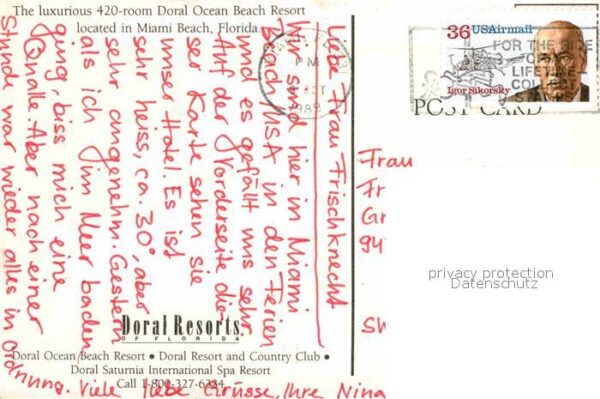 The luxurious 420-room Doral Ocean Beach Resort
located in Miami Beach, Florida.
36 USAirmail
Igor Sikorsky
PM
OCT
1989
FOR THE
OF A
LIFETIME
COLLECT
STAMPS
POST CARD
Liebe Frau Frischknecht
Wir sind hier in Miami
Beach/USA in den Ferien
und es gefällt uns sehr.
Auf der Vorderseite die-
ser Karte sehen sie
unser Hotel. Es ist
sehr heiss, ca. 30°, aber
sehr angenehm. Gestern
als ich im Meer baden
ging, biss mich eine
Qualle. Aber nach einer
Stunde war wieder alles in Ordnung.
Viele liebe Grüsse, Ihre Nina
Frau
Fr
Gr
94
privacy protection
Datenschutz
Doral Resorts
OF FLORIDA
Doral Ocean Beach Resort • Doral Resort and Country Club •
Doral Saturnia International Spa Resort
Call 1-800-327-6334